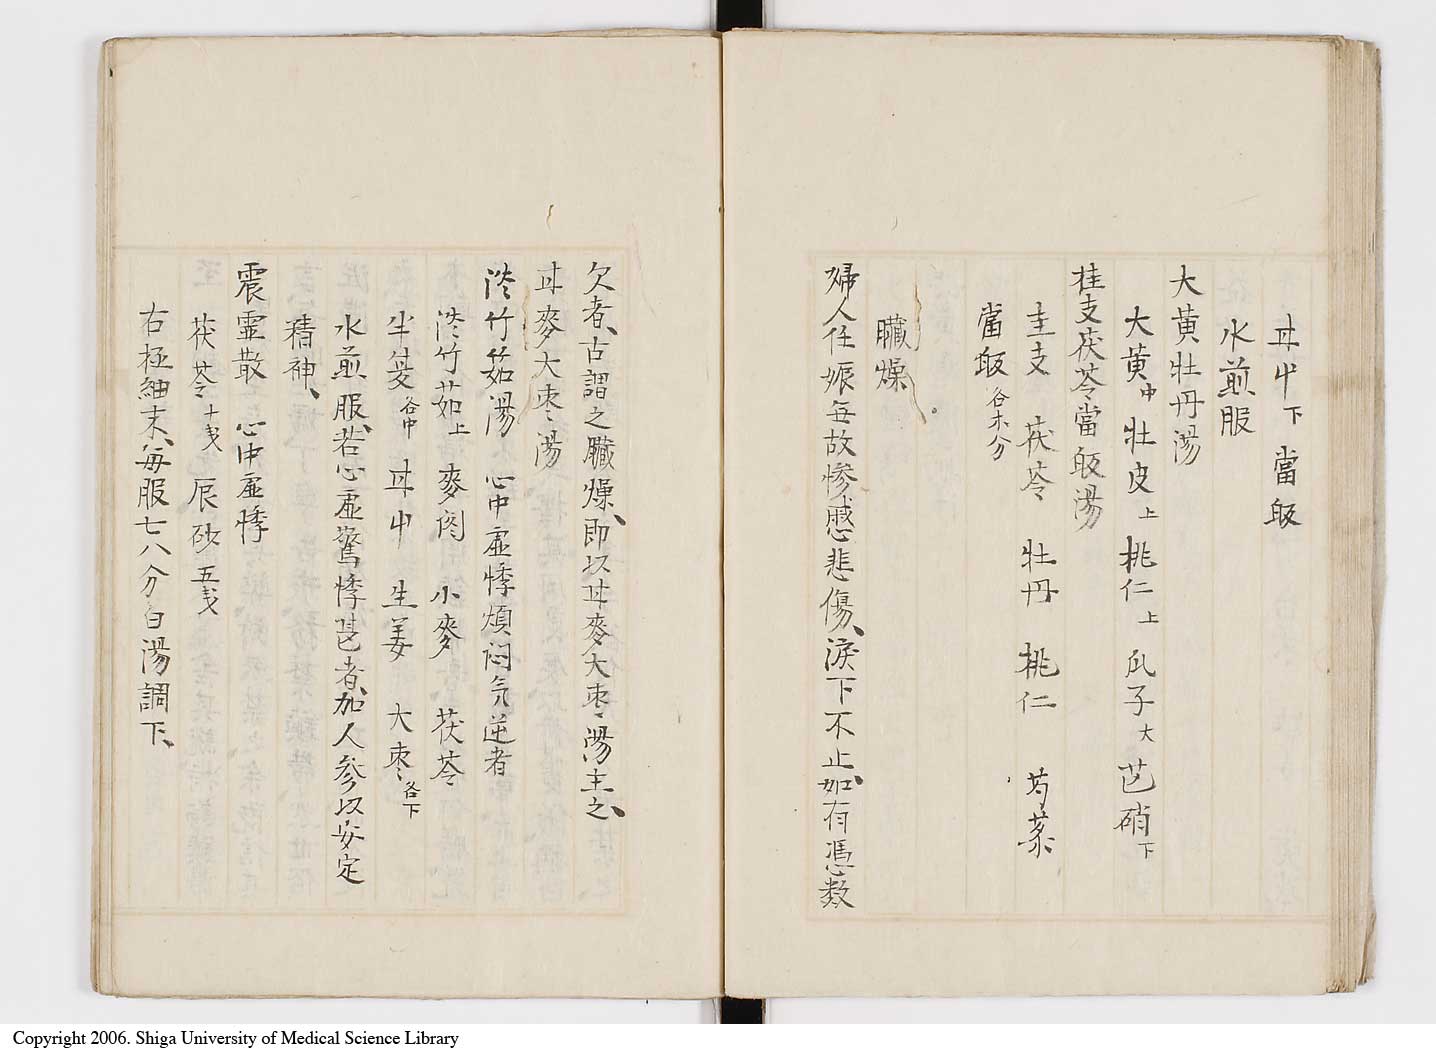 甘中下 當皈
水煎服
大黄牡丹湯
大黄中 牡皮上 桃仁上 瓜子大 芒硝下
桂支茯苓當皈湯
圭支 茯苓 牡丹 桃仁 芍薬
當皈各木分
臓燥
婦人任娠毎故惨慼悲傷、涙下不止、如有憑数
欠者、古謂之臓燥、即以甘麥大枣湯主之、
甘麥大枣湯
淡竹茹湯 心中虚悸煩悶気逆者
淡竹茹上 麥門 小麥 茯苓
半夏各中 甘中 生姜 大枣各下
水煎服、若心虚驚悸甚者、加人参以安定
精神、
震霊散 心中虚悸
茯苓十戋 辰砂五戋
右極細末、毎服七八分白湯調下、
Copyright 2006. Shiga University of Medical Science Library